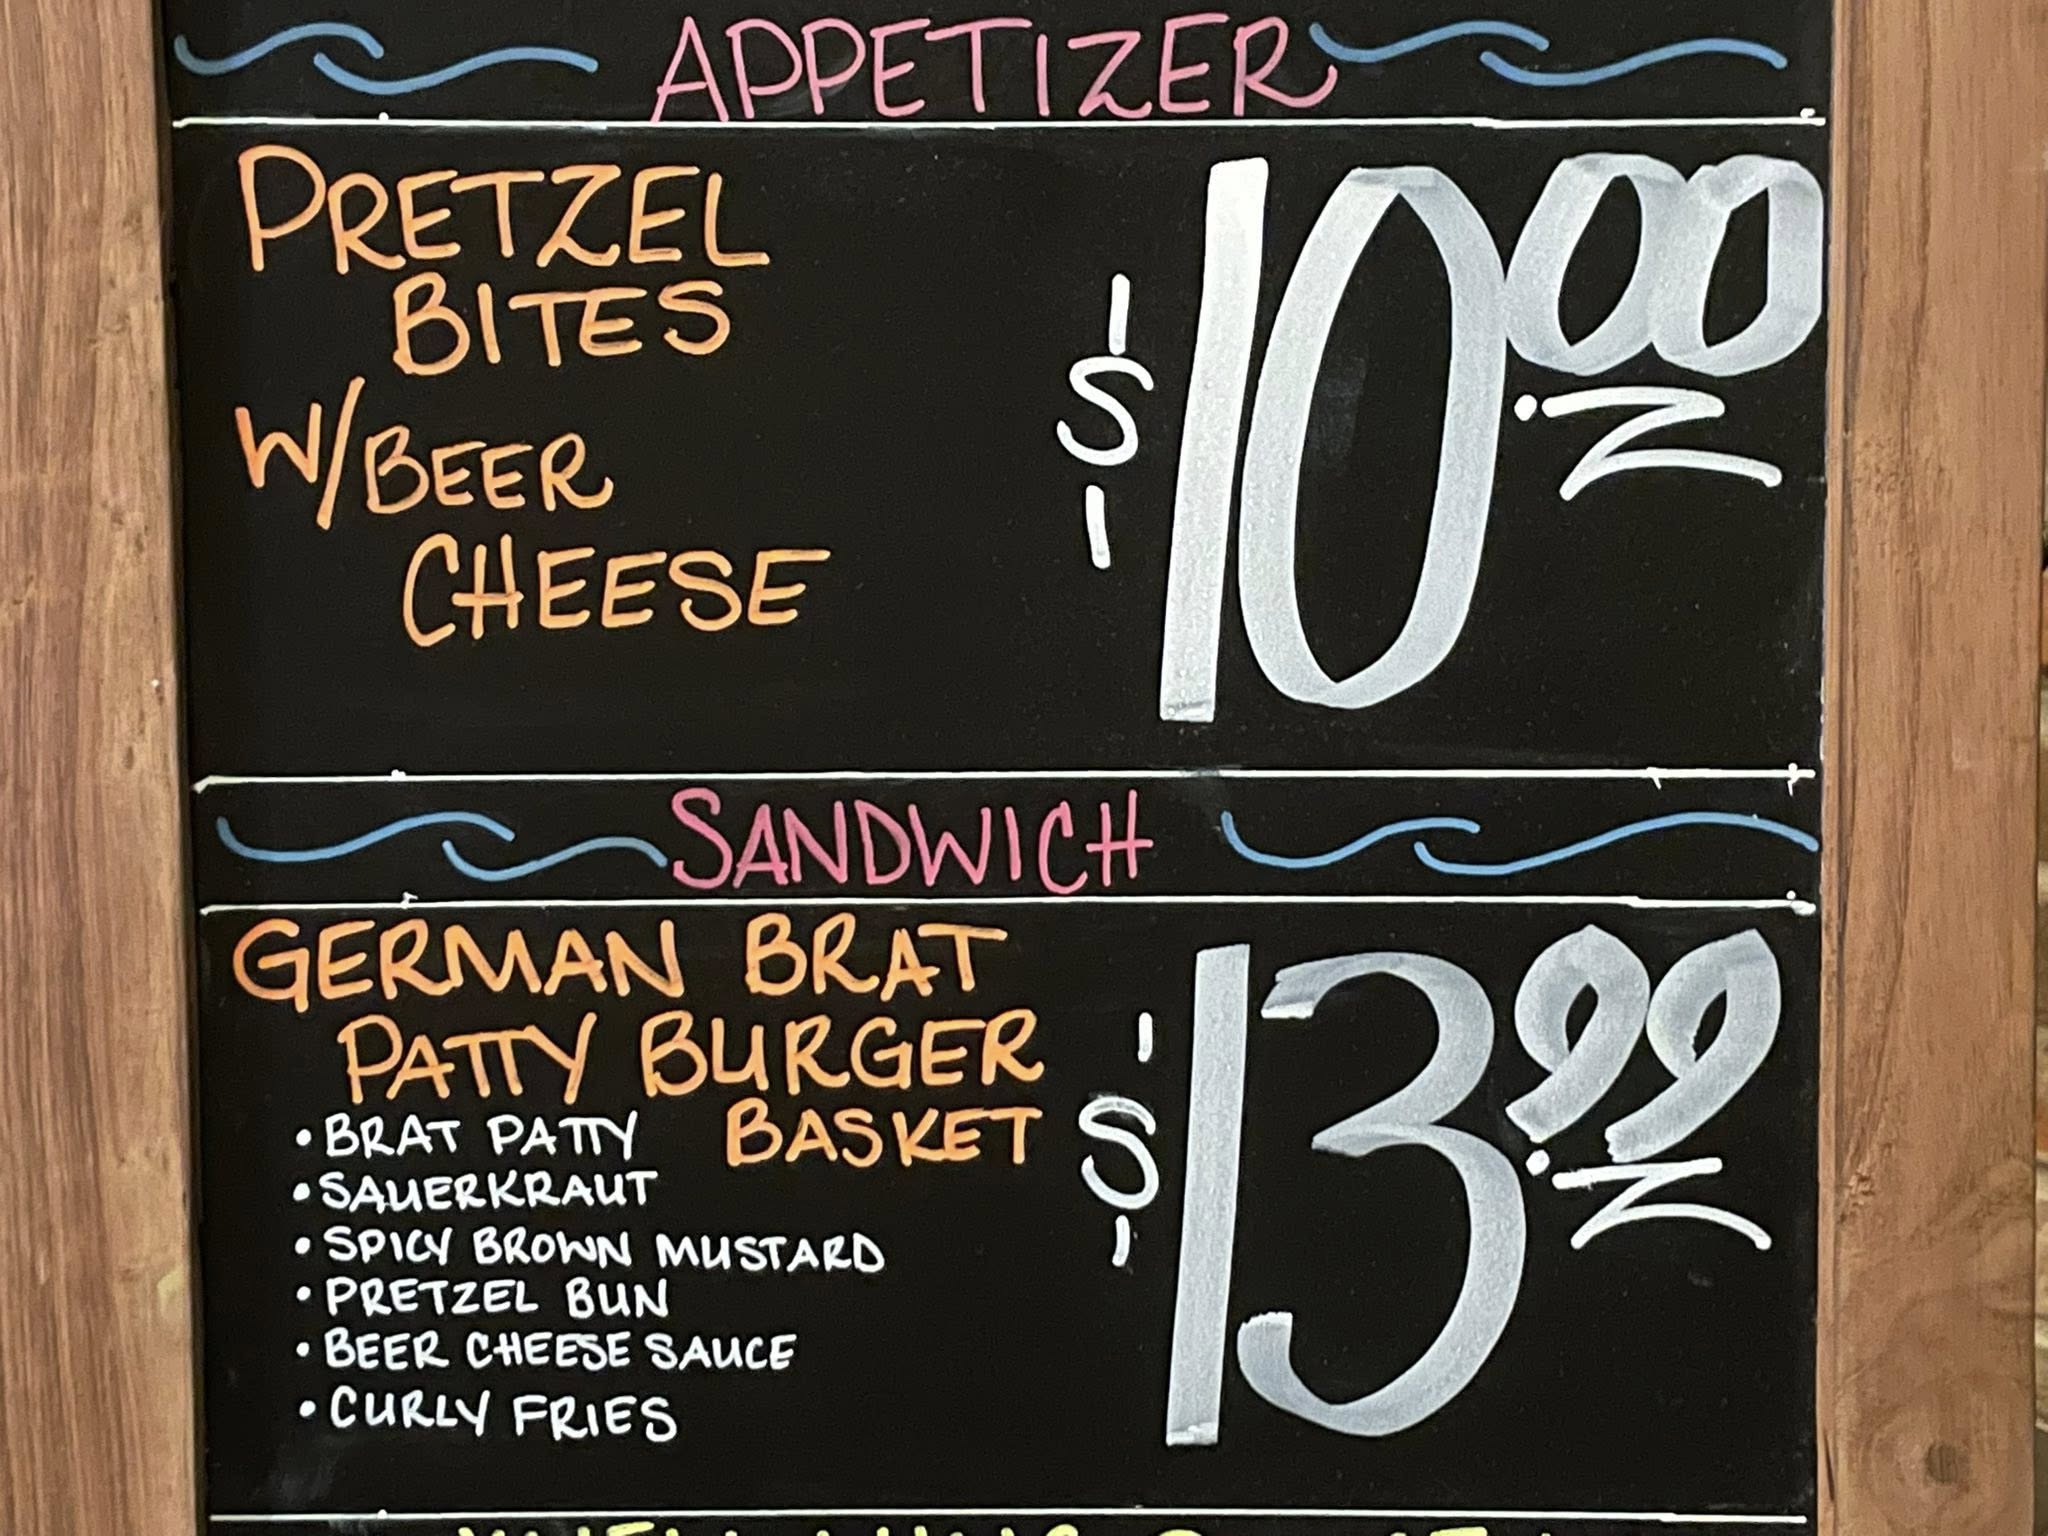 APPETIZER
PRETZEL
BITES
W/BEER
CHEESE
$10.00
SANDWICH
GERMAN BRAT
PATTY BURGER
BASKET
$13.99
• BRAT PATTY
• SAUERKRAUT
• SPICY BROWN MUSTARD
• PRETZEL BUN
• BEER CHEESE SAUCE
• CURLY FRIES